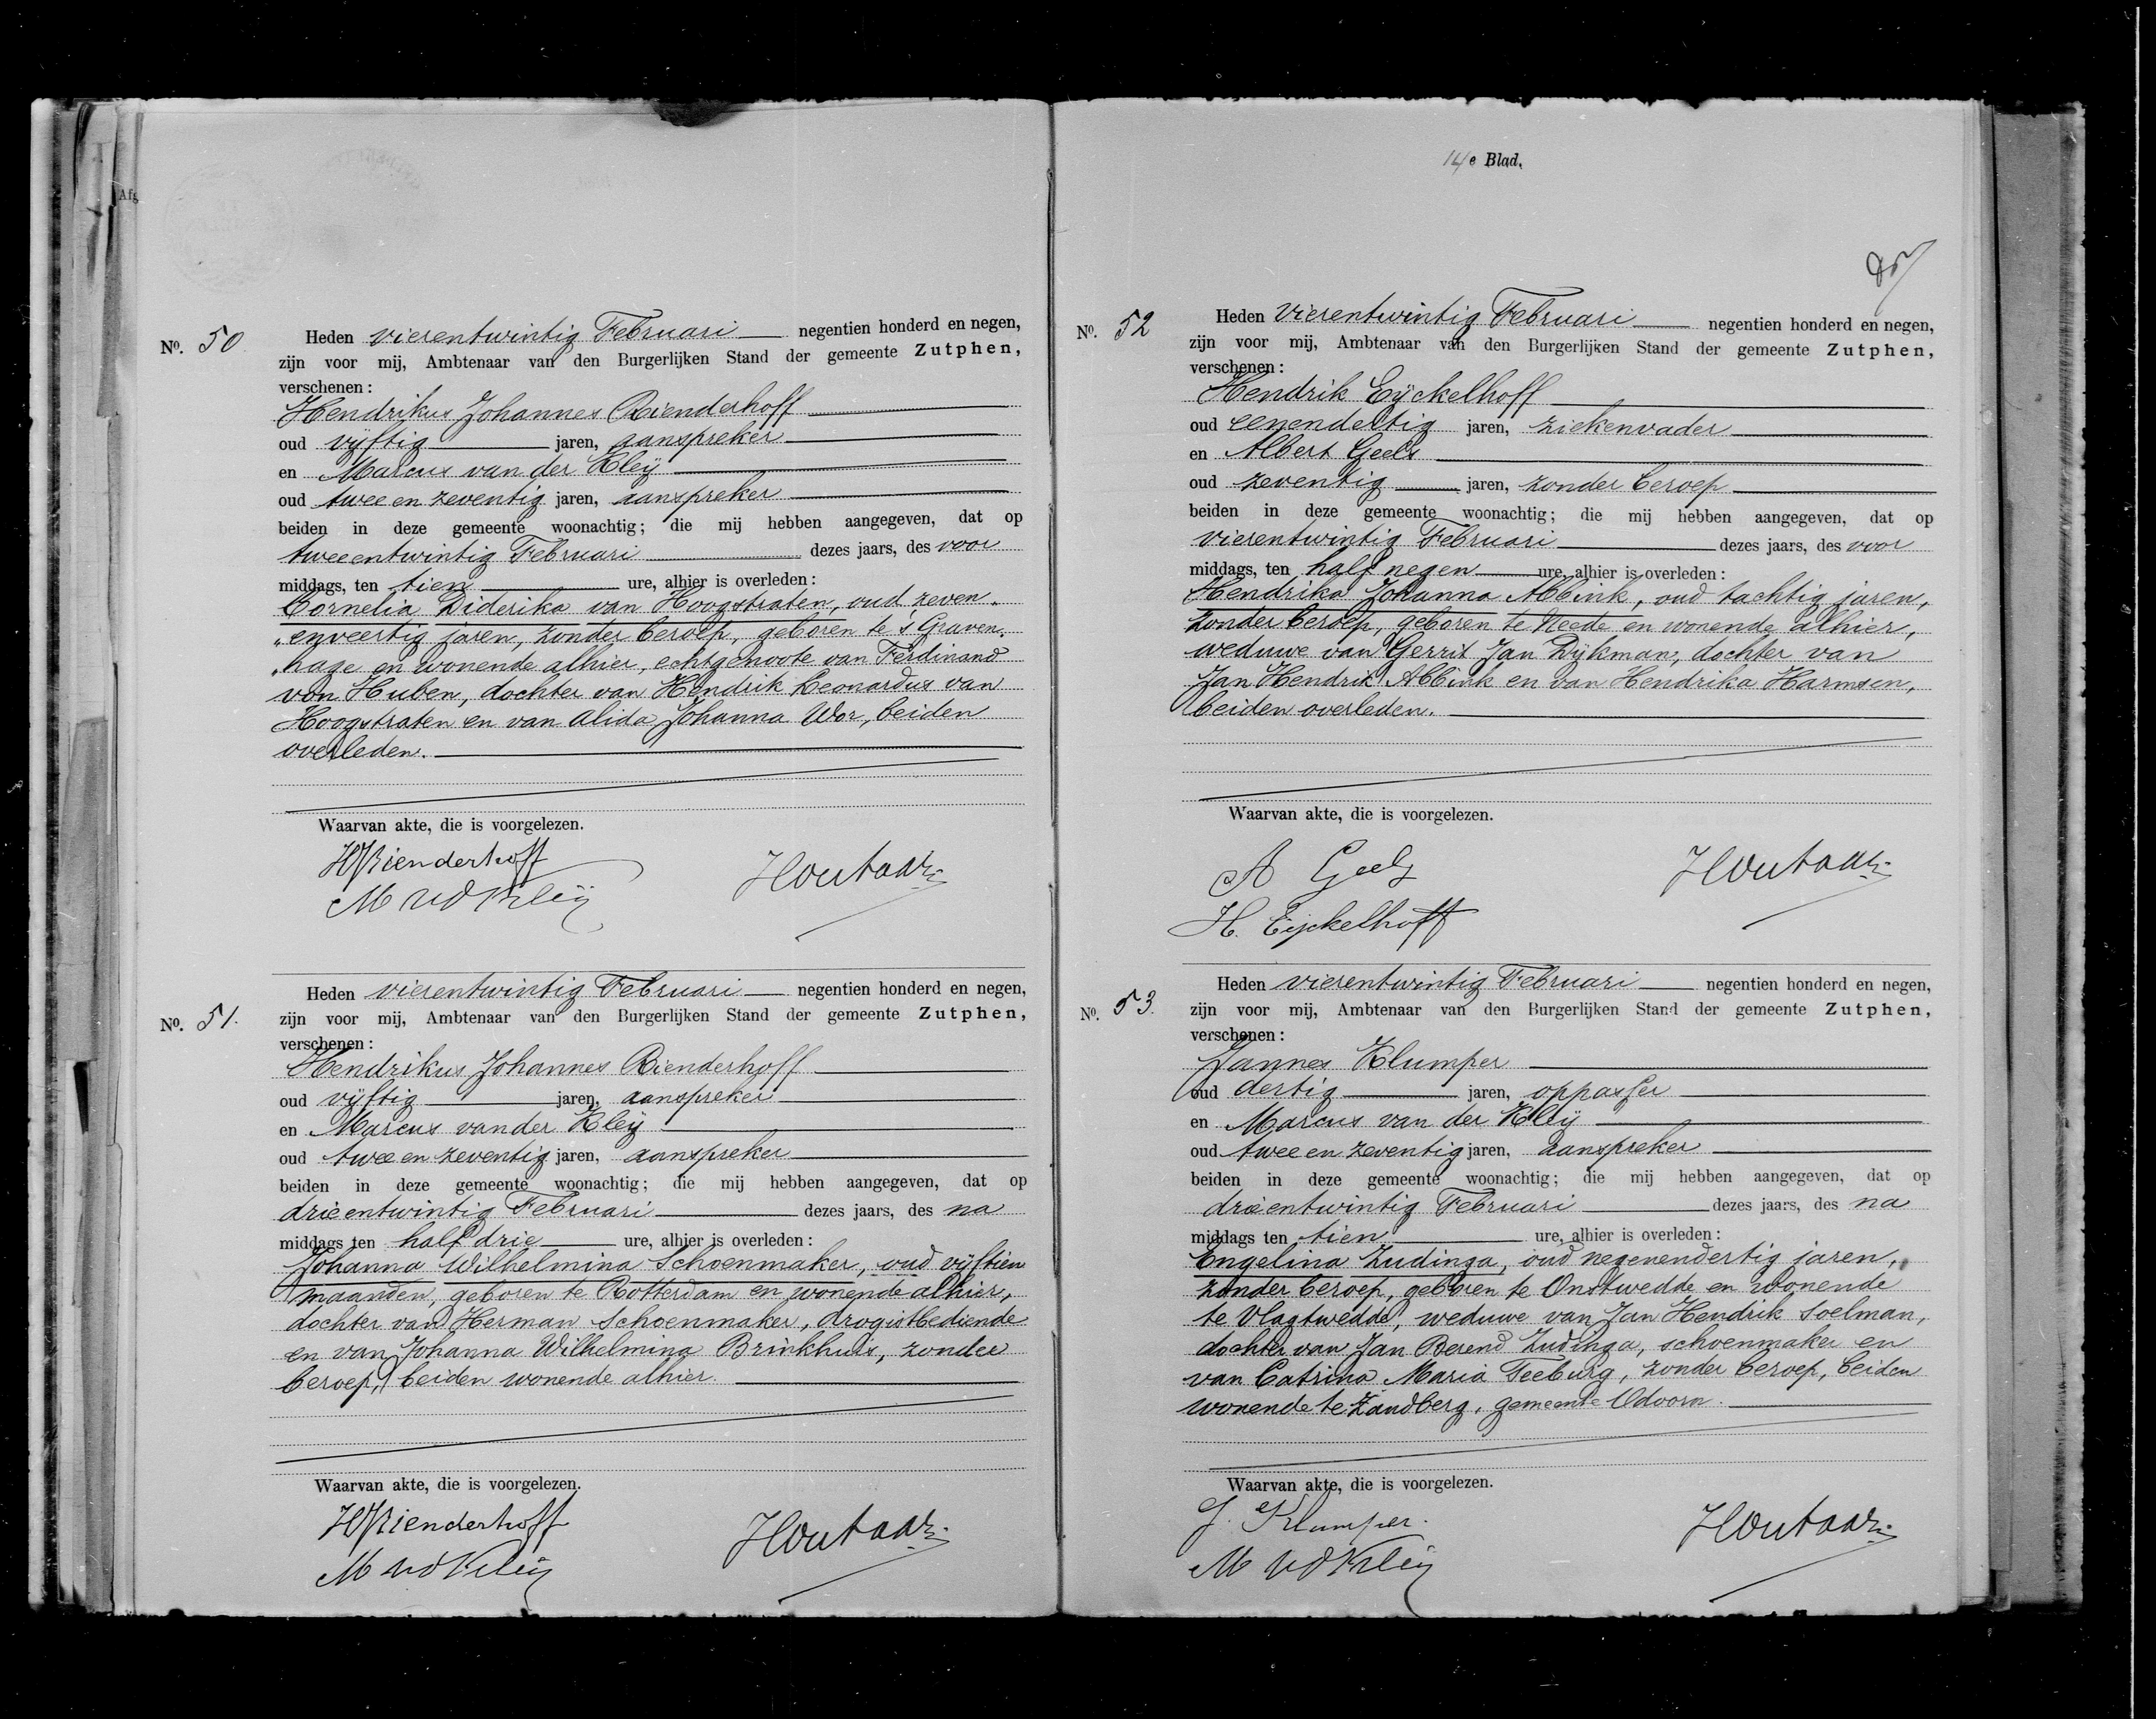 Afg
No. 50
Heden vierentwintig Februari negentien honderd en negen,
zijn voor mij, Ambtenaar van den Burgerlijken Stand der gemeente Zutphen,
verschenen:
Hendrikus Johannes Rienderhoff
oud vijftig jaren, aanspreker
en Marcus van der Kleij
oud twee en zeventig jaren, aanspreker
beiden in deze gemeente woonachtig; die mij hebben aangegeven, dat op
tweeentwintig Februari dezes jaars, des voor
middags, ten tien ure, alhier is overleden:
Cornelia Diderika van Hoogstraten, oud zeven-
"enveertig jaren, zonder beroep, geboren te 's Graven-
"hage en wonende alhier, echtgenoote van Ferdinand
von Huben, dochter van Hendrik Leonardus van
Hoogstraten en van Alida Johanna Wor, beiden
overleden.
Waarvan akte, die is voorgelezen.
HJRienderhoff
M vd Kleij
Houtaar
No. 51.
Heden vierentwintig Februari negentien honderd en negen,
zijn voor mij, Ambtenaar van den Burgerlijken Stand der gemeente Zutphen,
verschenen:
Hendrikus Johannes Rienderhoff
oud vijftig jaren, aanspreker
en Marcus van der Kleij
oud twee en zeventig jaren, aanspreker
beiden in deze gemeente woonachtig; die mij hebben aangegeven, dat op
drieentwintig Februari dezes jaars, des na
middags ten half drie ure, alhier is overleden:
Johanna Wilhelmina Schoenmaker, oud vijftien
maanden, geboren te Rotterdam en wonende alhier,
dochter van Herman Schoenmaker, drogistbediende
en van Johanna Wilhelmina Brinkhuis, zonder
beroep, beiden wonende alhier.
Waarvan akte, die is voorgelezen.
HJRienderhoff
M vd Kleij
Houtaar
14e Blad.
No. 52
Heden vierentwintig Februari negentien honderd en negen,
zijn voor mij, Ambtenaar van den Burgerlijken Stand der gemeente Zutphen,
verschenen:
Hendrik Eijckelhoff
oud eenendertig jaren, ziekenvader
en Albert Geels
oud zeventig jaren, zonder beroep
beiden in deze gemeente woonachtig; die mij hebben aangegeven, dat op
vierentwintig Februari dezes jaars, des voor
middags, ten half negen ure, alhier is overleden:
Hendrika Johanna Abbink, oud tachtig jaren,
zonder beroep, geboren te Neede en wonende alhier,
weduwe van Gerrit Jan Dijkman, dochter van
Jan Hendrik Abbink en van Hendrika Harmsen,
beiden overleden.
Waarvan akte, die is voorgelezen.
A Geels
H. Eijckelhoff
Houtaar
No. 53.
Heden vierentwintig Februari negentien honderd en negen,
zijn voor mij, Ambtenaar van den Burgerlijken Stand der gemeente Zutphen,
verschenen:
Jannes Klumper
oud dertig jaren, oppasser
en Marcus van der Kleij
oud twee en zeventig jaren, aanspreker
beiden in deze gemeente woonachtig; die mij hebben aangegeven, dat op
drieentwintig Februari dezes jaars, des na
middags ten tien ure, alhier is overleden:
Engelina Zudinga, oud negenendertig jaren,
zonder beroep, geboren te Onstwedde en wonende
te Vlagtwedde, weduwe van Jan Hendrik Soelman,
dochter van Jan Berend Zudinga, schoenmaker en
van Catrina Maria Teeburg, zonder beroep, beiden
wonende te Zandberg, gemeente Odoorn.
Waarvan akte, die is voorgelezen.
J. Klumper.
M vd Kleij
Houtaar